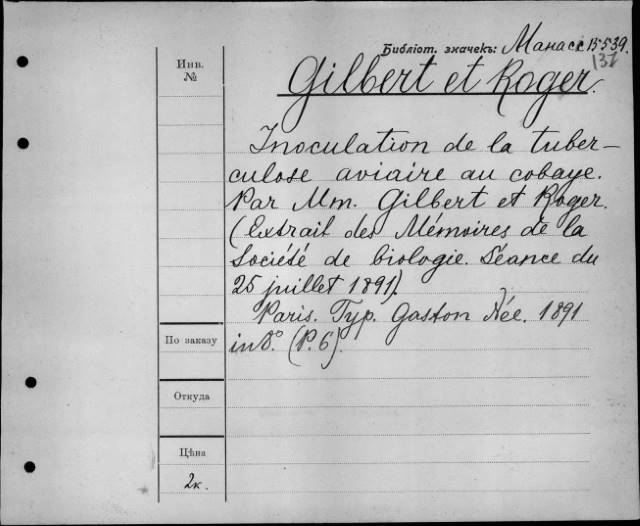 Библіот. значекъ: Манасс 15539.
137
Инв.
№
Gilbert et Roger.
Inoculation de la tuber-
culose aviaire au cobaye.
Par Mm. Gilbert et Roger.
(Extrait des Mémoires de la
Société de biologie. Séance du
25 juillet 1891).
Paris. Typ. Gaston Née. 1891
in 8°. (P. 6).
По заказу
Откуда
Цѣна
2к.